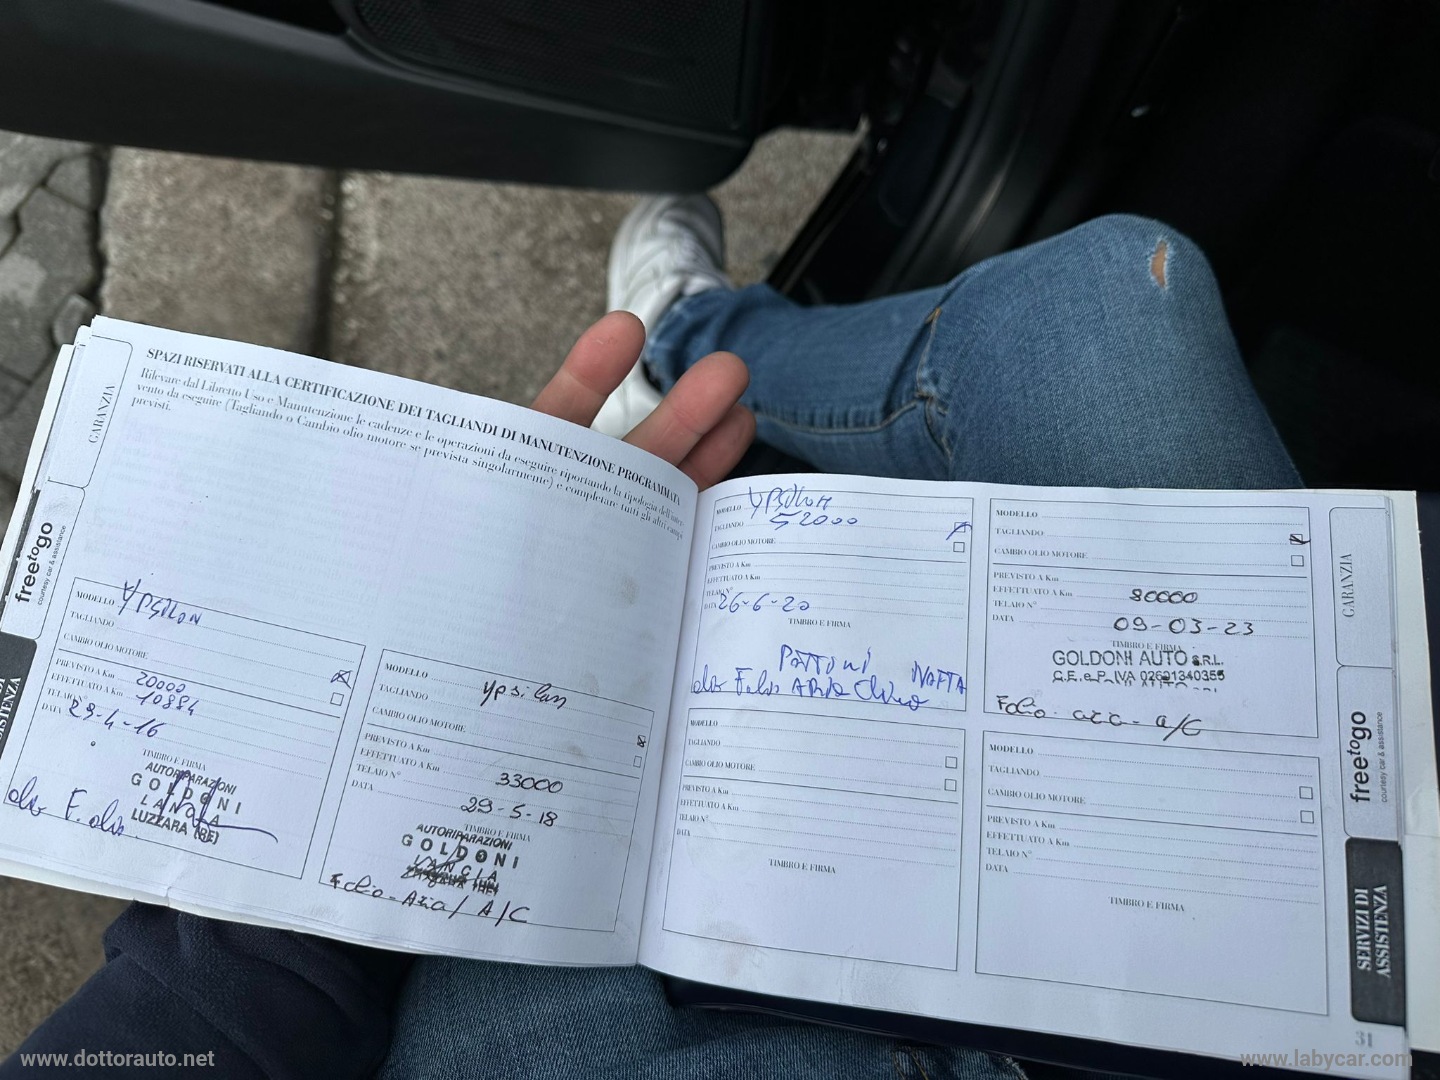 SPAZI RISERVATI ALLA CERTIFICAZIONE DEI TAGLIANDI DI MANUTENZIONE PROGRAMMATA
Rilevare dal Libretto Uso e Manutenzione le cadenze e le operazioni da eseguire riportando la tipologia dell'inter-
vento da eseguire (Tagliando o Cambio olio motore se prevista singolarmente) e completare tutti gli altri campi
previsti.
GARANZIA
freetogo
courtesy car & assistance
MODELLO YPSILON
TAGLIANDO
CAMBIO OLIO MOTORE
PREVISTO A Km 20000
EFFETTUATO A Km 10884
TELAIO N°
DATA 29-4-16
TIMBRO E FIRMA
AUTORIPARAZIONI
GOLDONI
LANCIA
LUZZARA (RE)
olio F. olio
MODELLO Ypsilon
TAGLIANDO
CAMBIO OLIO MOTORE
PREVISTO A Km
EFFETTUATO A Km 33000
TELAIO N°
DATA 29-5-18
TIMBRO E FIRMA
AUTORIPARAZIONI
GOLDONI
LANCIA
Folio - Aria / A/C
MODELLO YPSILON
TAGLIANDO 52000
CAMBIO OLIO MOTORE
PREVISTO A Km
EFFETTUATO A Km
TELAIO N°
DATA 26-6-20
TIMBRO E FIRMA
NAFTA
MODELLO
TAGLIANDO
CAMBIO OLIO MOTORE
PREVISTO A Km
EFFETTUATO A Km 80000
TELAIO N°
DATA 09-03-23
TIMBRO E FIRMA
GOLDONI AUTO S.R.L.
C.F. e P. IVA 02621340355
Folio - aria - a/C
MODELLO
TAGLIANDO
CAMBIO OLIO MOTORE
PREVISTO A Km
EFFETTUATO A Km
TELAIO N°
DATA
TIMBRO E FIRMA
MODELLO
TAGLIANDO
CAMBIO OLIO MOTORE
PREVISTO A Km
EFFETTUATO A Km
TELAIO N°
DATA
TIMBRO E FIRMA
GARANZIA
freetogo
courtesy car & assistance
SERVIZI DI
ASSISTENZA
31
www.dottorauto.net
www.labycar.com